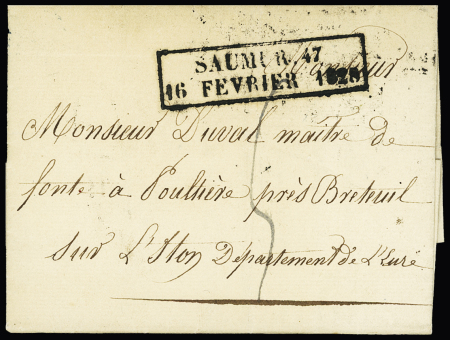 SAUMUR 47
16 FEVRIER 1828
Monsieur
Monsieur Duval maître de
fonte à Poultière près Breteuil
sur L'Iton Département de L'Eure